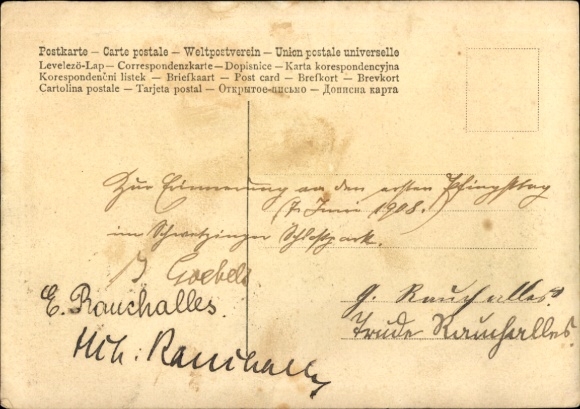 Postkarte – Carte postale – Weltpostverein – Union postale universelle
Levelező-Lap – Correspondenzkarte – Dopisnice – Karta korespondencyjna
Korespondenční listek – Briefkaart – Post card – Brefkort – Brevkort
Cartolina postale – Tarjeta postal – Открытое-письмо – Дописна карта
Zur Erinnerung an den ersten Pfingsttag
(7. Juni 1908.)
im Schwetzinger Schloßpark.
Goebels
E. Rauchalles.
G. Rauchalles.
Trude Rauchalles.
Rauchalles